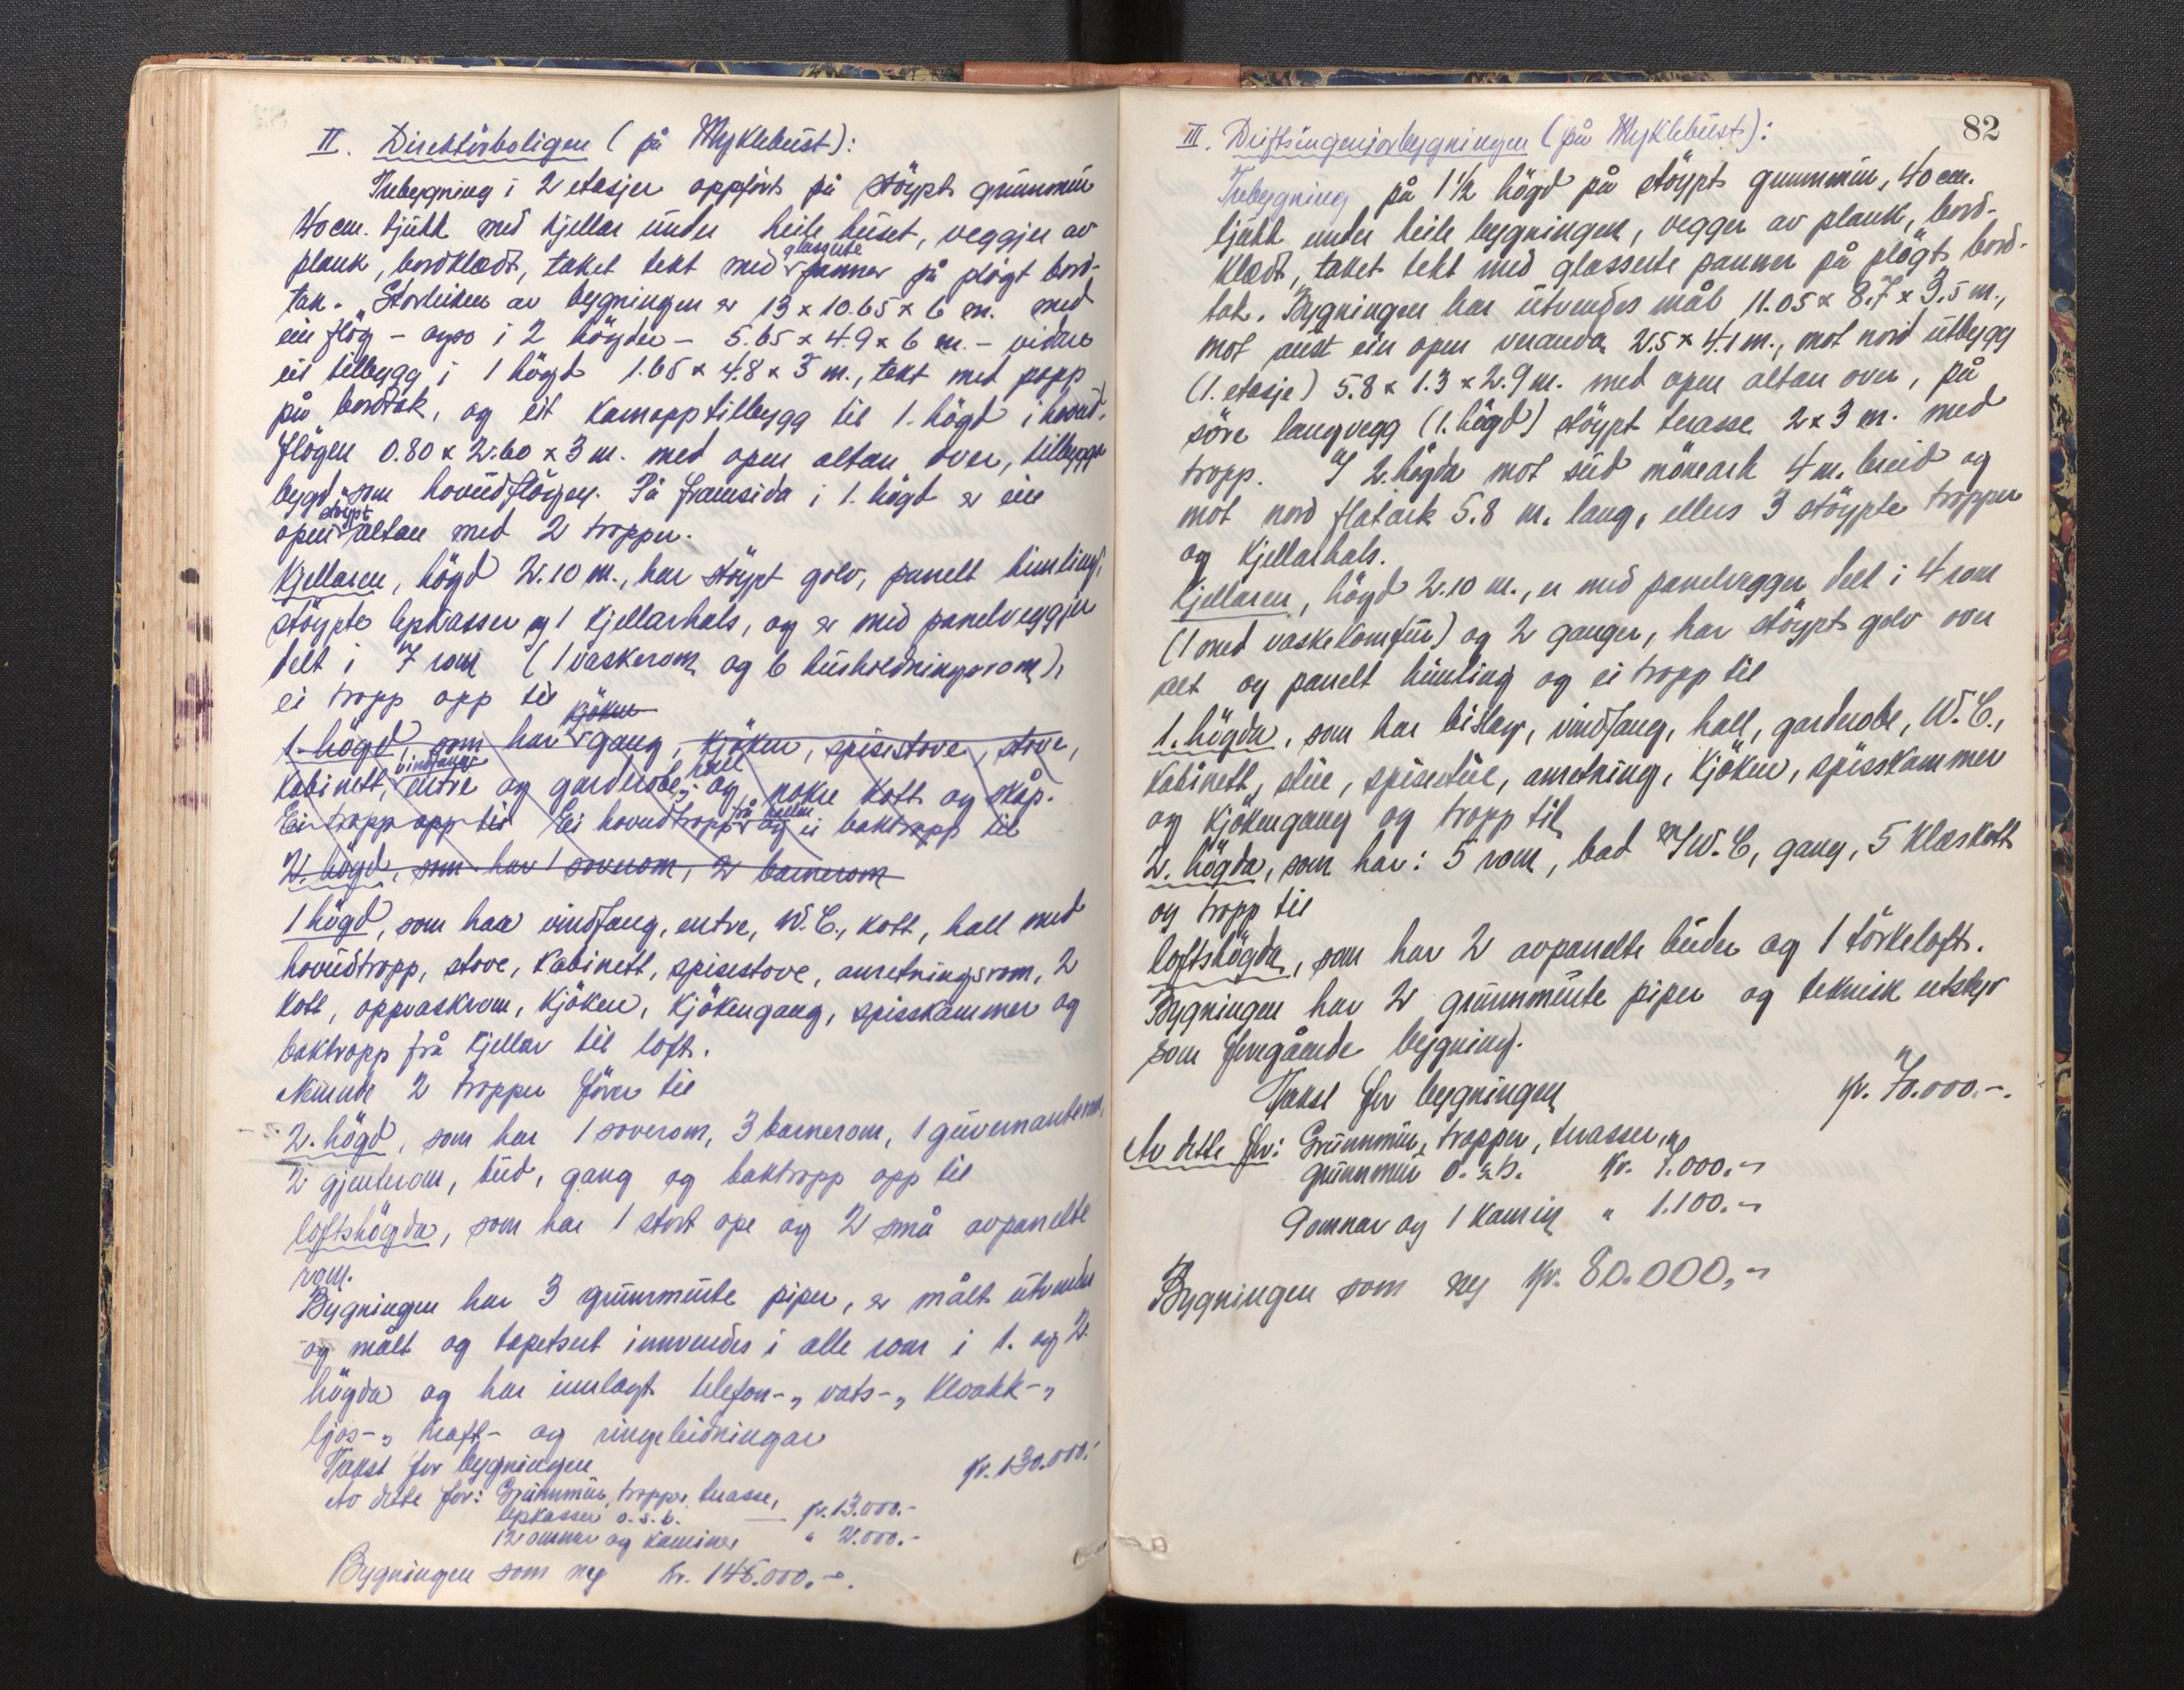 II. Direktörboligen (på Myklebust):
Trebygning i 2 etasjer oppfört på stöypt grunnmur
40 cm. tjukk med kjellar under heile huset, veggjer av
plank, bordklædt, taket tekt med glaserte panner på plögt bord-
tak. Storleiken av bygningen er 13 x 10.65 x 6 m. med
ein flög - ogso i 2 högder - 5.65 x 4.9 x 6 m. - vidare
eit tilbygg i 1 högd 1.65 x 4.8 x 3 m., tekt med papp
på bordtak, og eit karnapptilbygg til 1. högd i hovud-
flögen 0.80 x 2.60 x 3 m. med open altan over, tilbygga
bygd som hovudflögen. På framsida i 1. högd er ein
open stöypt altan med 2 tropper.
Kjellaren, högd 2.10 m., har stöypt golv, panelt himling,
stöypte lyskasser og 1 kjellarhals, og er med panelveggjer
delt i 7 rom (1 vaskerom og 6 husholdningsrom),
ei tropp opp til
kjöken
1. högd, som har gang, kjöken, spisestove, stove,
kabinett, vindfang entre og garderobe, hall og nokre kott og skåp.
Ei tropp opp til Ei hovudtropp frå hallen og ei baktropp til
2. högd, som har 1 soverom, 2 barnerom
1 högd, som har vindfang, entre, W.C., kott, hall med
hovudtropp, stove, kabinett, spisestove, anretningsrom, 2
kott, oppvaskrom, kjöken, kjökengang, spisskammer og
baktropp frå kjellar til loft.
Nemnde 2 tropper förer til
2. högd, som har 1 soverom, 3 barnerom, 1 guvernanterom,
2 gjenterom, bud, gang og baktropp opp til
loftshögda, som har 1 stort ope og 2 små avpanelte
rom.
Bygningen har 3 grunnmurte piper, er målt utvendes
og målt og tapetsert innvendes i alle rom i 1. og 2.
högda og har innlagt telefon-, vats-, kloakk-,
ljos-, kraft- og ringeleidningar
Takst for bygningen kr. 130.000.-
Av dette for: Grunnmur, tropper, terasse,
lyskasser o.s.b. kr. 13.000.-
12 omnar og kaminer " 2.000.-
Bygningen som ny kr. 145.000.-.
82
III. Driftsingeniörbygningen (på Myklebust):
Trebygning på 1 1/2 högd på stöypt grunnmur, 40 cm.
tjukk under heile bygningen, vegger av plank, bord-
klædt, taket tekt med glasserte panner på plögt bord-
tak. Bygningen har utvendes mål 11.05 x 8.7 x 3.5 m.,
mot aust ein open veranda 2.5 x 4.1 m., mot nord utbygg
(1. etasje) 5.8 x 1.3 x 2.9 m. med open altan over, på
söre langvegg (1. högd) stöypt terasse 2 x 3 m. med
tropp. I 2. högda mot sud möneark 4 m. breid og
mot nord flatark 5.8 m. lang, ellers 3 stöypte tropper
og kjellarhals.
Kjellaren, högd 2.10 m., er med panelvegger delt i 4 rom
(1 med vaskekomfur) og 2 ganger, har stöypt golv over
alt og panelt himling og ei tropp til
1. högda, som har bislag, vindfang, hall, garderobe, W.C.,
kabinett, stue, spisestue, anretning, kjöken, spisskammer
og kjökengang og tropp til
2. högda, som har: 5 rom, bad m/W.C, gang, 5 klæskott
og tropp til
loftshögda, som har 2 avpanelte buder og 1 törkeloft.
Bygningen har 2 grunnmurte piper og teknisk utstyr
som foregåande bygning.
Takst for bygningen kr. 70.000.-.
Av dette for: Grunnmur, tropper, terasser,
grunnmur o.s.b. kr. 7.000.-
9 omnar og 1 kamin " 1.100.-
Bygningen som ny kr. 80.000,-